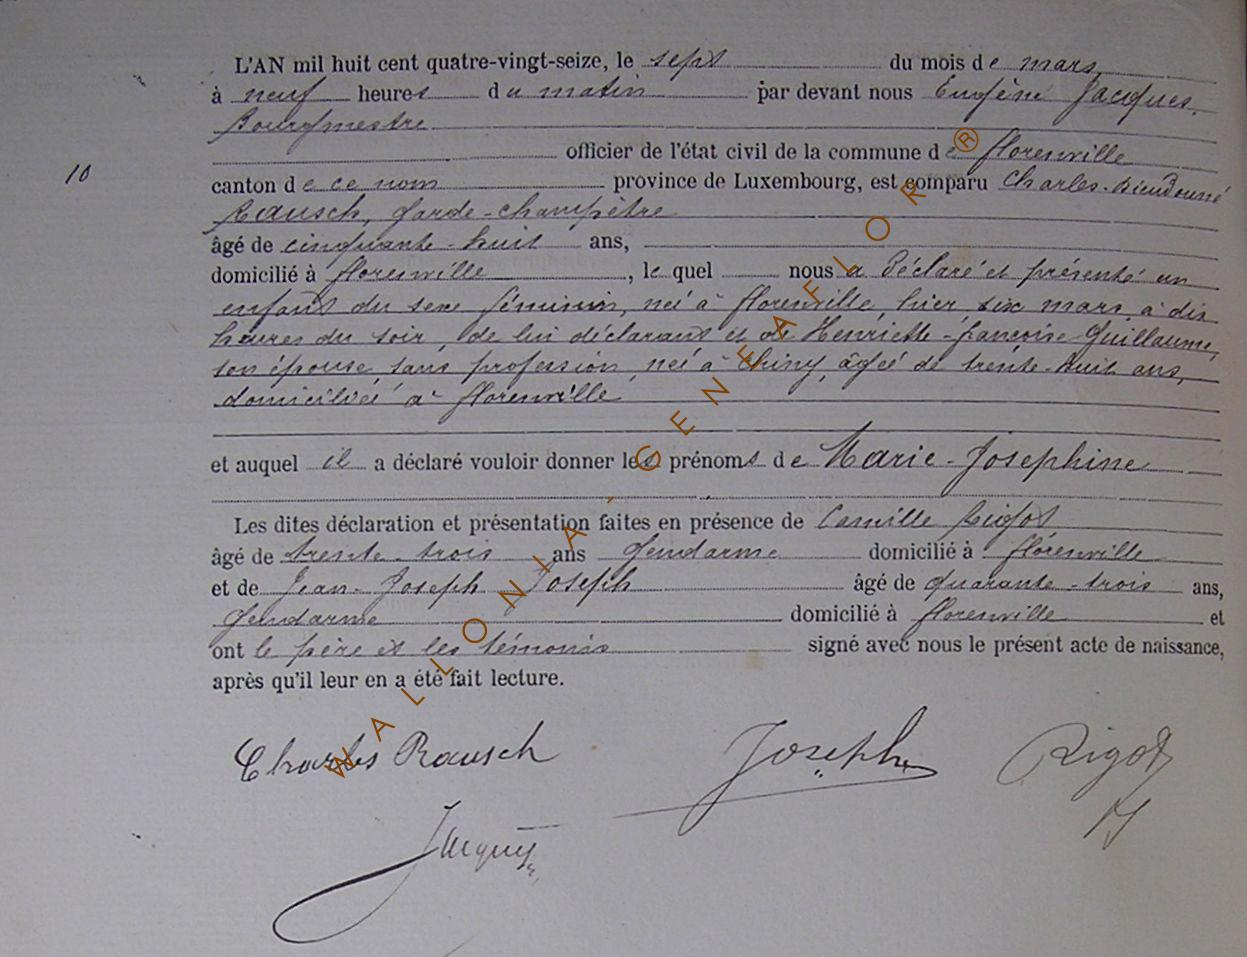 L'AN mil huit cent quatre-vingt-seize, le sept du mois de mars,
à neuf heures du matin par devant nous Eugène Jacques,
Bourgmestre
officier de l'état civil de la commune de florenville
10
canton de ce nom province de Luxembourg, est comparu Charles-Dieudonné
Rausch, garde-champêtre
âgé de cinquante-huit ans,
domicilié à florenville, le quel nous a déclaré et présenté un
enfant du sexe féminin, née à florenville, hier, six mars, à dix
heures du soir, de lui déclarant et de Henriette-françoise Guillaume,
son épouse, sans profession, née à Chiny, âgée de trente-huit ans,
domiciliée à florenville
et auquel il a déclaré vouloir donner les prénoms de Marie-Josephine
Les dites déclaration et présentation faites en présence de Camille Rigot
âgé de trente-trois ans gendarme domicilié à florenville
et de Jean-Joseph Joseph âgé de quarante-trois ans,
gendarme domicilié à florenville et
ont le père et les témoins signé avec nous le présent acte de naissance,
après qu'il leur en a été fait lecture.
Charles Rausch Joseph Rigot
Jacques
WALLONIA-GENEAFLOR®